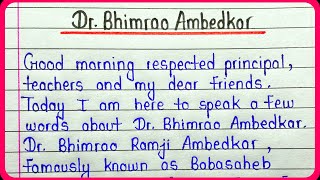 Dr. Bhimrao Ambedkar
Good morning respected principal,
teachers and my dear friends.
Today I am here to speak a few
words about Dr. Bhimrao Ambedkar.
Dr. Bhimrao Ramji Ambedkar,
famously known as Babasaheb